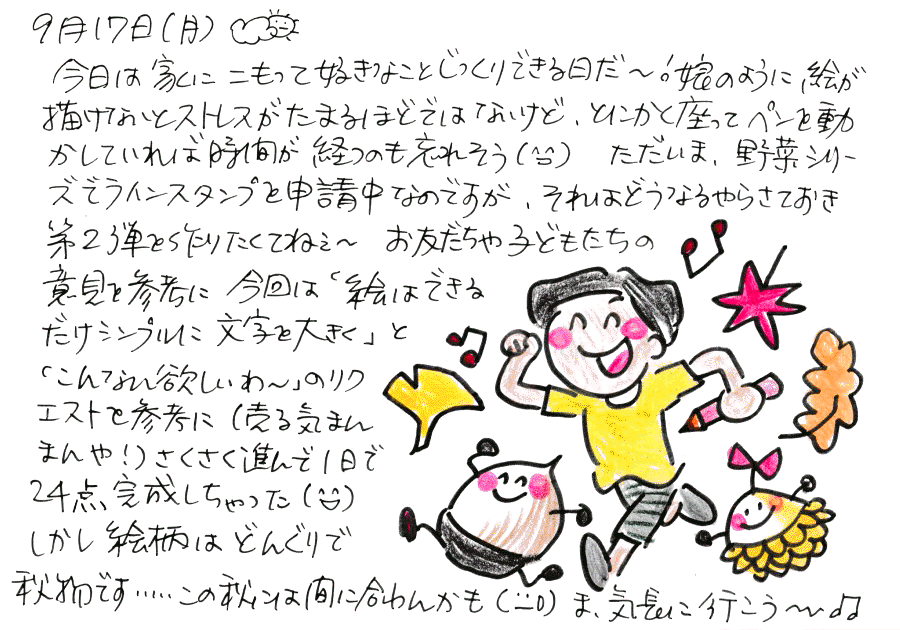 9月17日(月)
今日は家にこもって好きなことじっくりできる日だ〜!娘のように絵が
描けないとストレスがたまるほどではないけど、とにかく座ってペンを動
かしていれば時間が経つのも忘れそう(^^) ただいま、野菜シリー
ズでラインスタンプを申請中なのですが、それはどうなるやらさておき
第2弾を作りたくてねぇ〜 お友だちや子どもたちの
意見を参考に 今回は「絵はできる
だけシンプルに 文字を大きく」と
「こんなん欲しいわ〜」のリク
エストを参考に(売る気まん
まんや!)さくさく進んで1日で
24点完成しちゃった(^^)
しかし絵柄はどんぐりで
秋物です・・・・・この秋には間に合わんかも(^^;) ま、気長に行こう〜♪♫